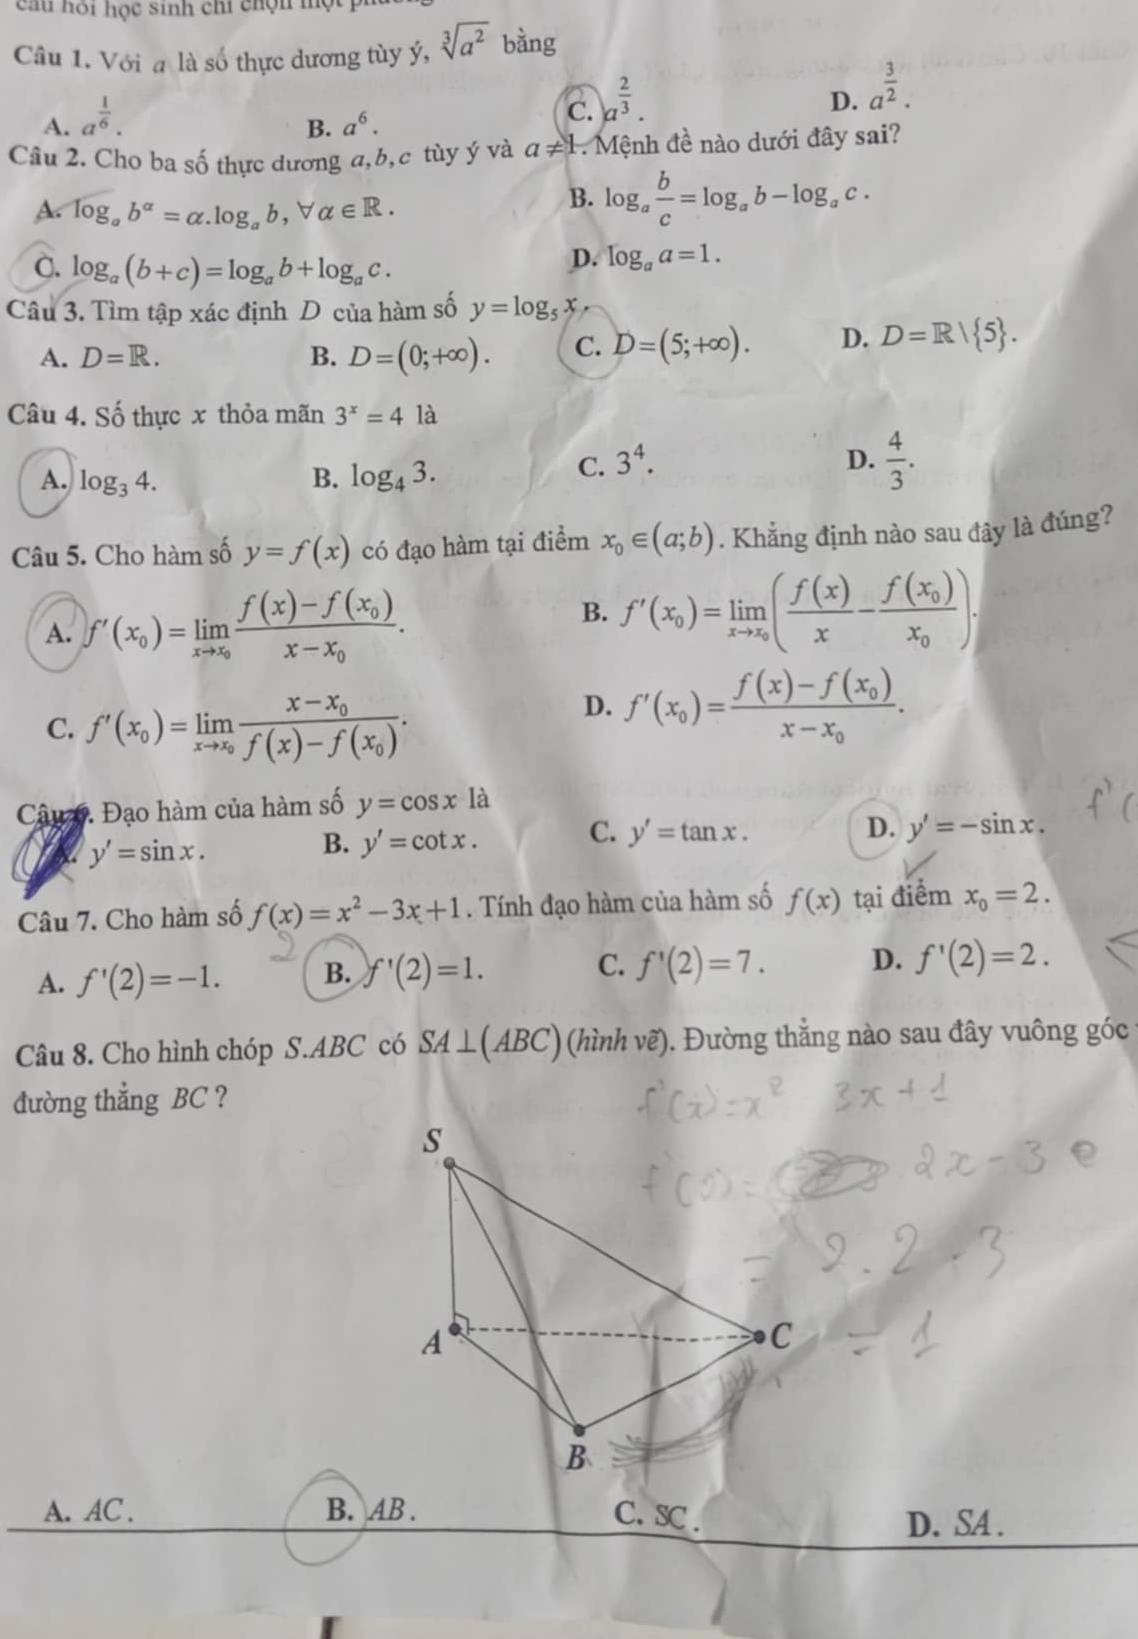 câu hỏi học sinh chỉ chọn một
Câu 1. Với a là số thực dương tùy ý, ∛(a²) bằng
A. a^(1/6). B. a⁶. C. a^(2/3). D. a^(3/2).
Câu 2. Cho ba số thực dương a,b,c tùy ý và a ≠ 1. Mệnh đề nào dưới đây sai?
A. logₐ b^α = α.logₐ b, ∀α ∈ ℝ. B. logₐ b/c = logₐ b − logₐ c.
C. logₐ(b+c) = logₐ b + logₐ c. D. logₐ a = 1.
Câu 3. Tìm tập xác định D của hàm số y = log₅ x.
A. D = ℝ. B. D = (0;+∞). C. D = (5;+∞). D. D = ℝ\{5}.
Câu 4. Số thực x thỏa mãn 3ˣ = 4 là
A. log₃ 4. B. log₄ 3. C. 3⁴. D. 4/3.
Câu 5. Cho hàm số y = f(x) có đạo hàm tại điểm x₀ ∈ (a;b). Khẳng định nào sau đây là đúng?
A. f'(x₀) = lim_(x→x₀) (f(x) − f(x₀))/(x − x₀). B. f'(x₀) = lim_(x→x₀) (f(x)/x − f(x₀)/x₀).
C. f'(x₀) = lim_(x→x₀) (x − x₀)/(f(x) − f(x₀)). D. f'(x₀) = (f(x) − f(x₀))/(x − x₀).
Câu 6. Đạo hàm của hàm số y = cos x là
f'(
A. y' = sin x. B. y' = cot x. C. y' = tan x. D. y' = −sin x.
Câu 7. Cho hàm số f(x) = x² − 3x + 1. Tính đạo hàm của hàm số f(x) tại điểm x₀ = 2.
2
A. f'(2) = −1. B. f'(2) = 1. C. f'(2) = 7. D. f'(2) = 2.
Câu 8. Cho hình chóp S.ABC có SA ⊥ (ABC) (hình vẽ). Đường thẳng nào sau đây vuông góc
đường thẳng BC ?
f'(x) = x² 3x + 1
S
2x − 3
= 2.2 - 3
A
C
= 1
B
A. AC. B. AB. C. SC. D. SA.